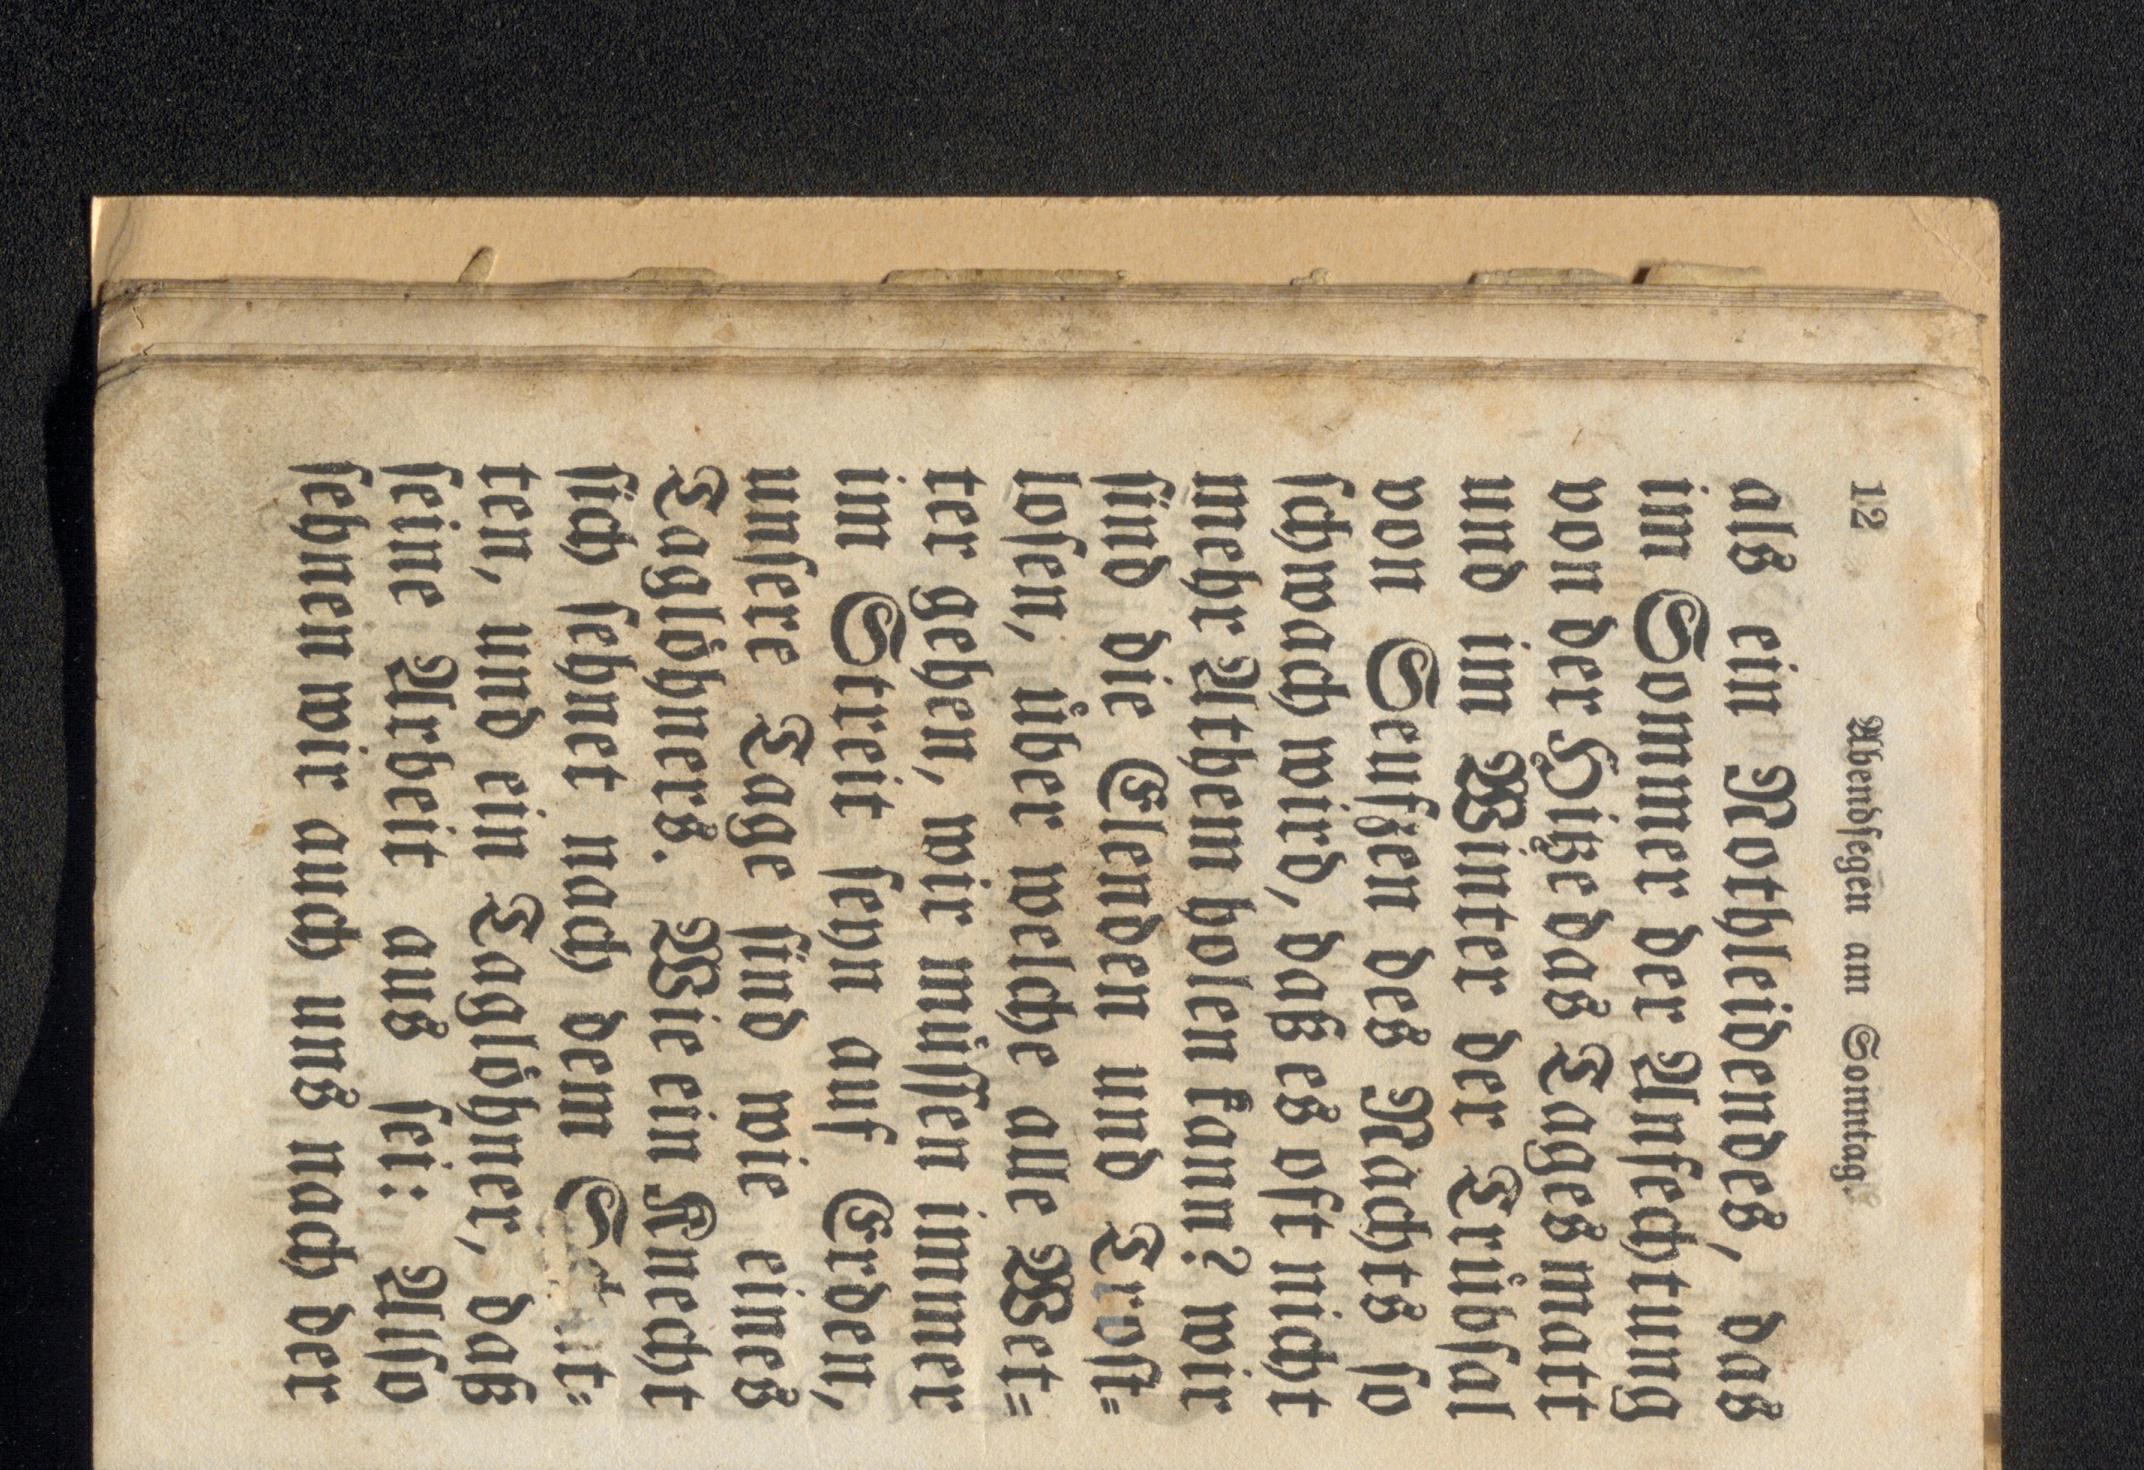 12 Abendsegen am Sonntag.
als ein Nothleidendes, das
im Sommer der Anfechtung
von der Hitze das Tages matt
und im Winter der Trübsal
von Seufzen des Nachts so
schwach wird, daß es oft nicht
mehr Athem holen kann? wir
sind die Elenden und Trost-
losen, über welche alle Wet-
ter gehen, wir müssen immer
im Streit seyn auf Erden,
unsere Tage sind wie eines
Taglöhners. Wie ein Knecht
sich sehnet nach dem
ten, und ein Taglöhner, daß
seine Arbeit aus sei: Also
sehnen wir auch uns nach der